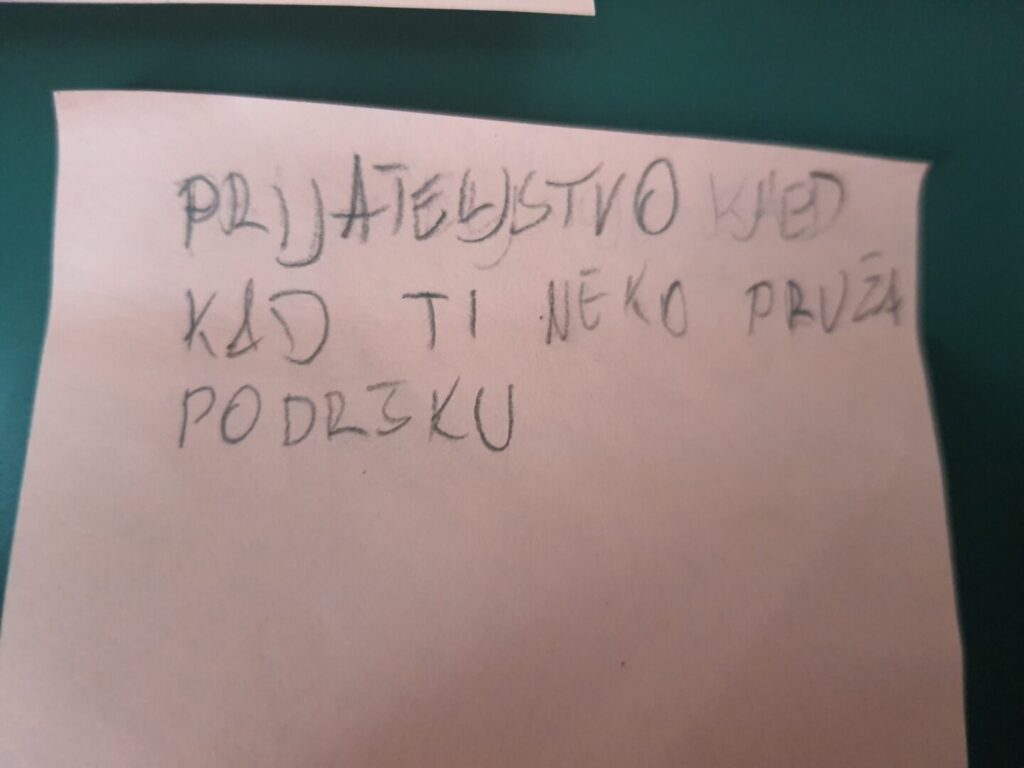 PRIJATELJSTVO
KAD TI NEKO PRUŽA
PODRŠKU